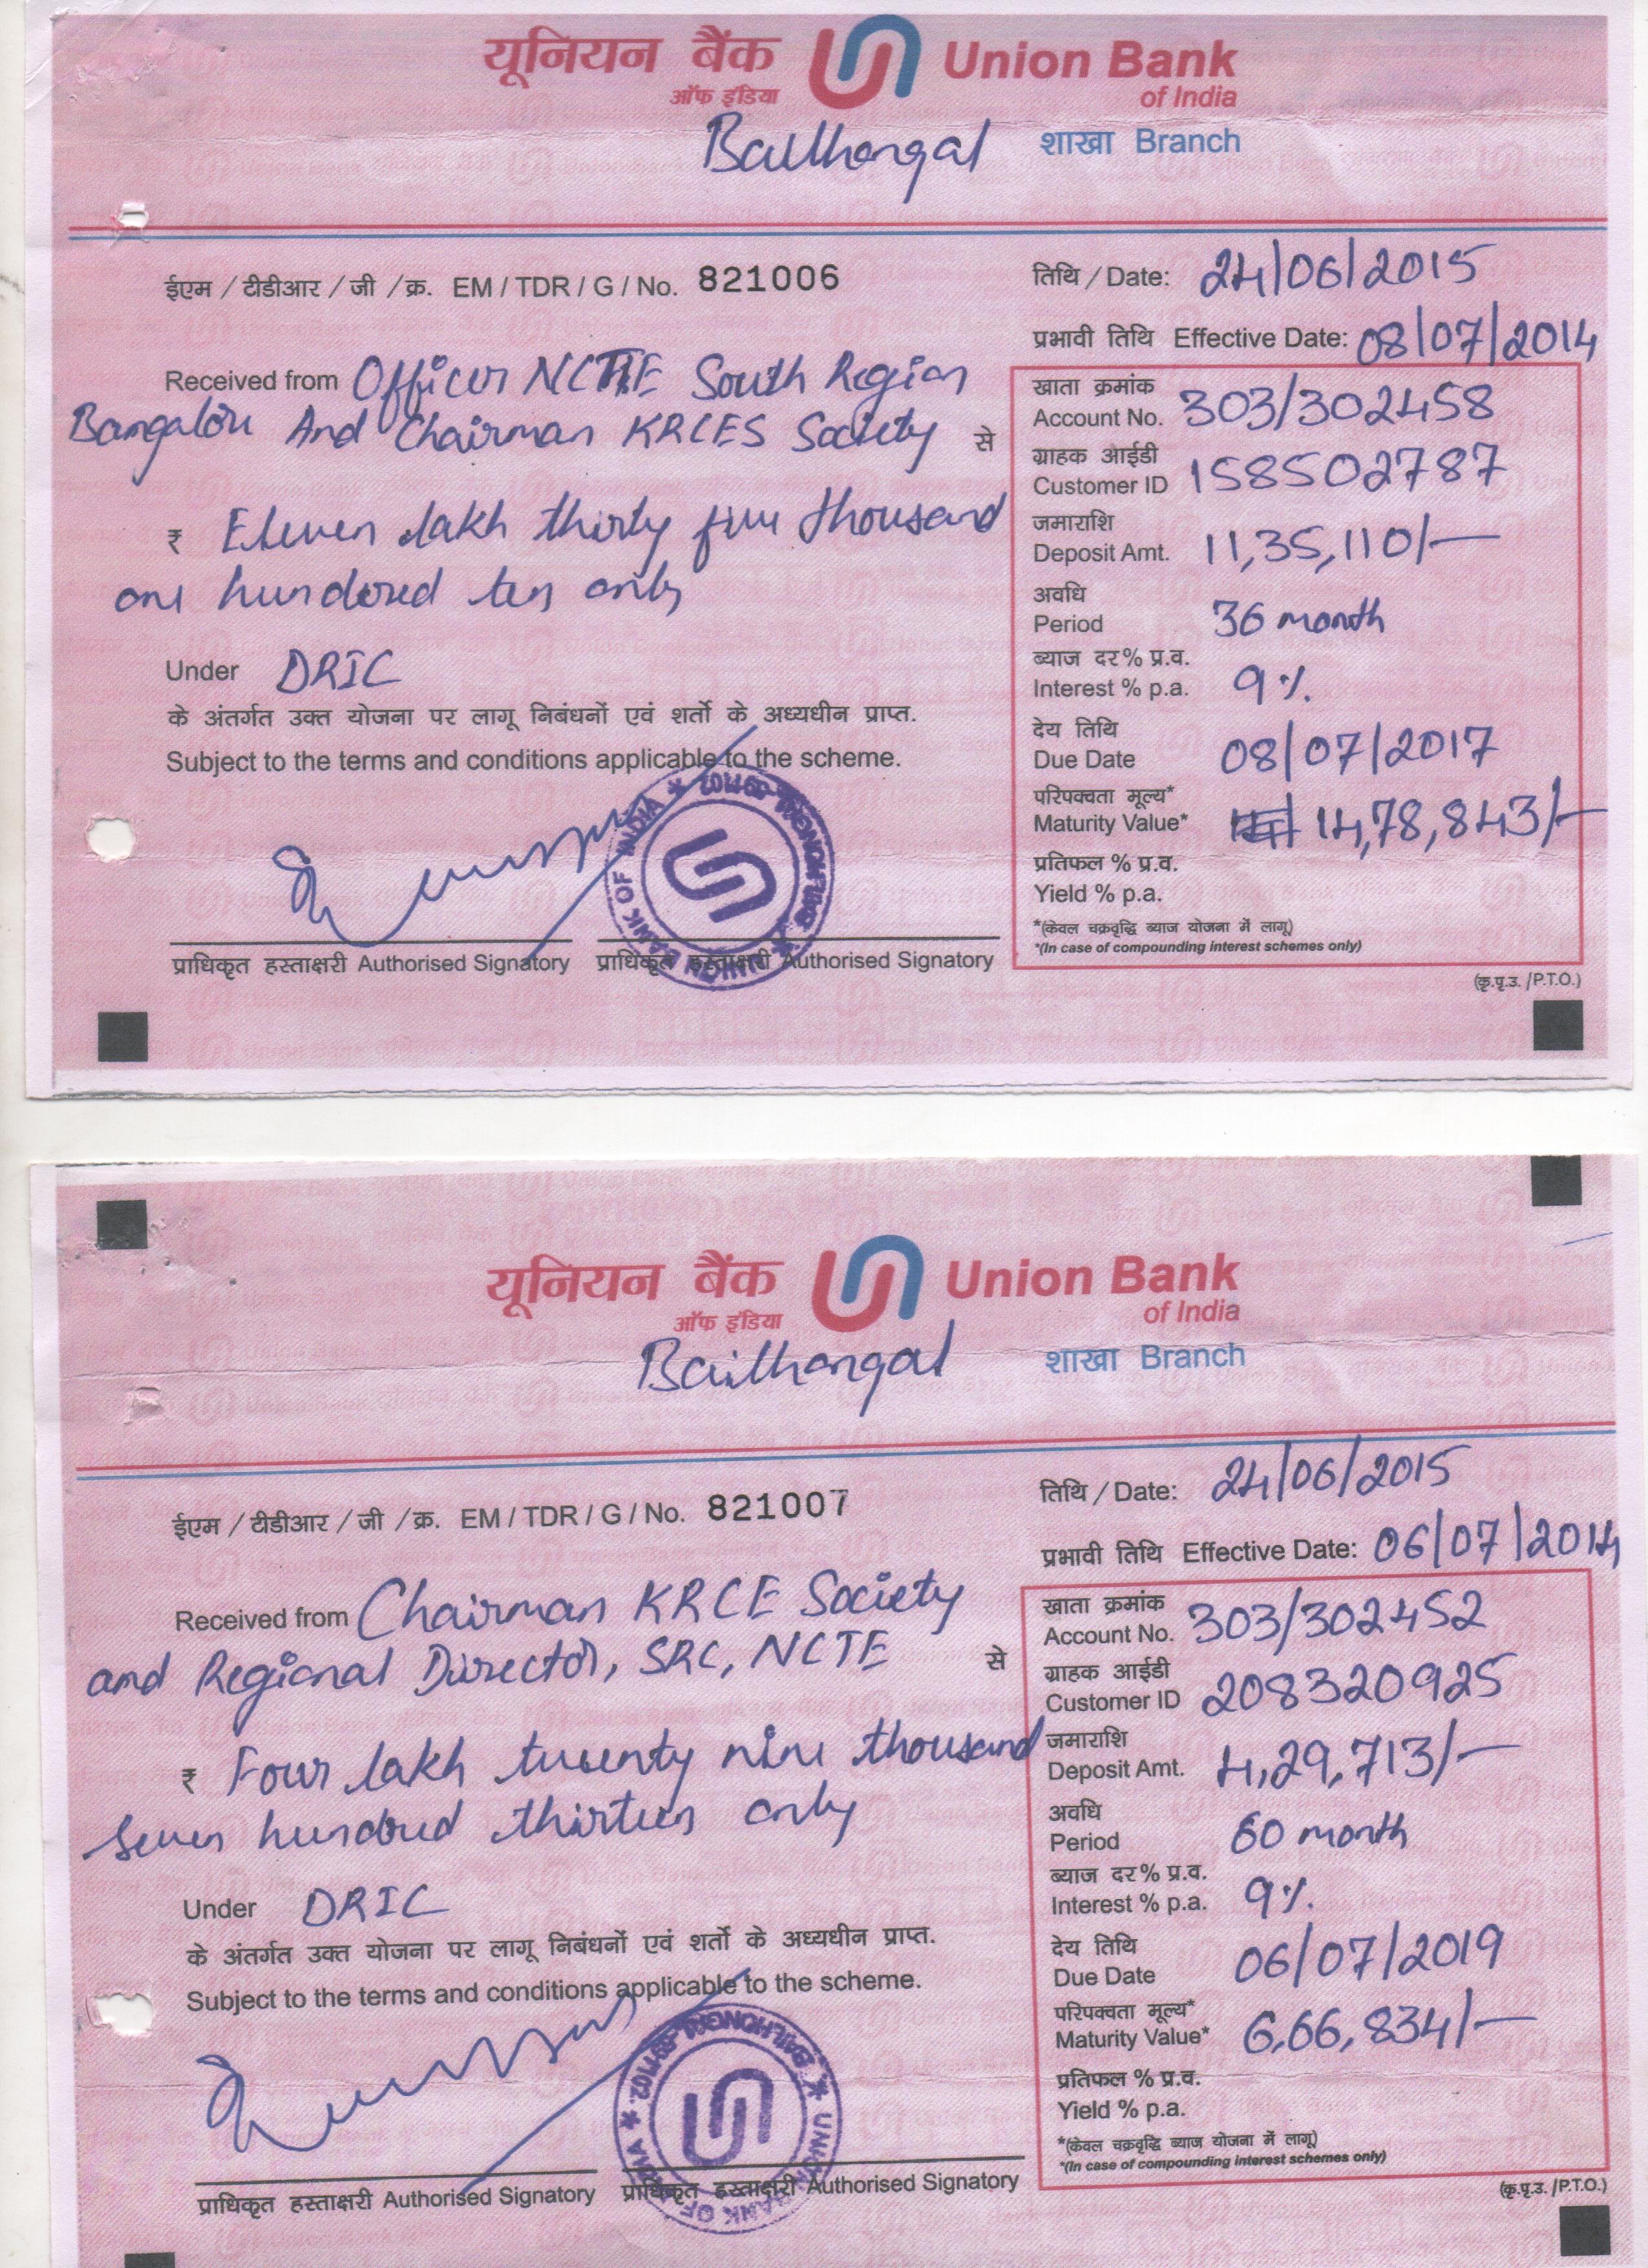 यूनियन बैंक Union Bank
ऑफ इंडिया of India
Bailhongal शाखा Branch
ईएम / टीडीआर / जी / क्र. EM / TDR / G / No. 821006
तिथि / Date: 24/06/2015
प्रभावी तिथि Effective Date: 08/07/2014
Received from Officer NCTE South Region
Bangalore And Chairman KRCES Society से
₹ Eleven lakh thirty five thousand
one hundered ten only
Under DRIC
के अंतर्गत उक्त योजना पर लागू निबंधनों एवं शर्तो के अध्यधीन प्राप्त.
Subject to the terms and conditions applicable to the scheme.
प्राधिकृत हस्ताक्षरी Authorised Signatory प्राधिकृत हस्ताक्षरी Authorised Signatory
खाता क्रमांक
Account No. 303/302458
ग्राहक आईडी
Customer ID 158502787
जमाराशि
Deposit Amt. 11,35,110/-
अवधि
Period 36 month
ब्याज दर% प्र.व.
Interest % p.a. 9%
देय तिथि
Due Date 08/07/2017
परिपक्वता मूल्य*
Maturity Value* 14,78,843/-
प्रतिफल % प्र.व.
Yield % p.a.
*(केवल चक्रवृद्धि ब्याज योजना में लागू)
*(In case of compounding interest schemes only)
(कृ.पृ.उ. /P.T.O.)
यूनियन बैंक Union Bank
ऑफ इंडिया of India
Bailhongal शाखा Branch
ईएम / टीडीआर / जी / क्र. EM / TDR / G / No. 821007
तिथि / Date: 24/06/2015
प्रभावी तिथि Effective Date: 06/07/2014
Received from Chairman KRCE Society
and Regional Director, SRC, NCTE से
₹ Four lakh twenty nine thousand
seven hundred thirteen only
Under DRIC
के अंतर्गत उक्त योजना पर लागू निबंधनों एवं शर्तो के अध्यधीन प्राप्त.
Subject to the terms and conditions applicable to the scheme.
प्राधिकृत हस्ताक्षरी Authorised Signatory प्राधिकृत हस्ताक्षरी Authorised Signatory
खाता क्रमांक
Account No. 303/302452
ग्राहक आईडी
Customer ID 208320925
जमाराशि
Deposit Amt. 4,29,713/-
अवधि
Period 60 month
ब्याज दर% प्र.व.
Interest % p.a. 9%
देय तिथि
Due Date 06/07/2019
परिपक्वता मूल्य*
Maturity Value* 6,66,834/-
प्रतिफल % प्र.व.
Yield % p.a.
*(केवल चक्रवृद्धि ब्याज योजना में लागू)
*(In case of compounding interest schemes only)
(कृ.पृ.उ. /P.T.O.)